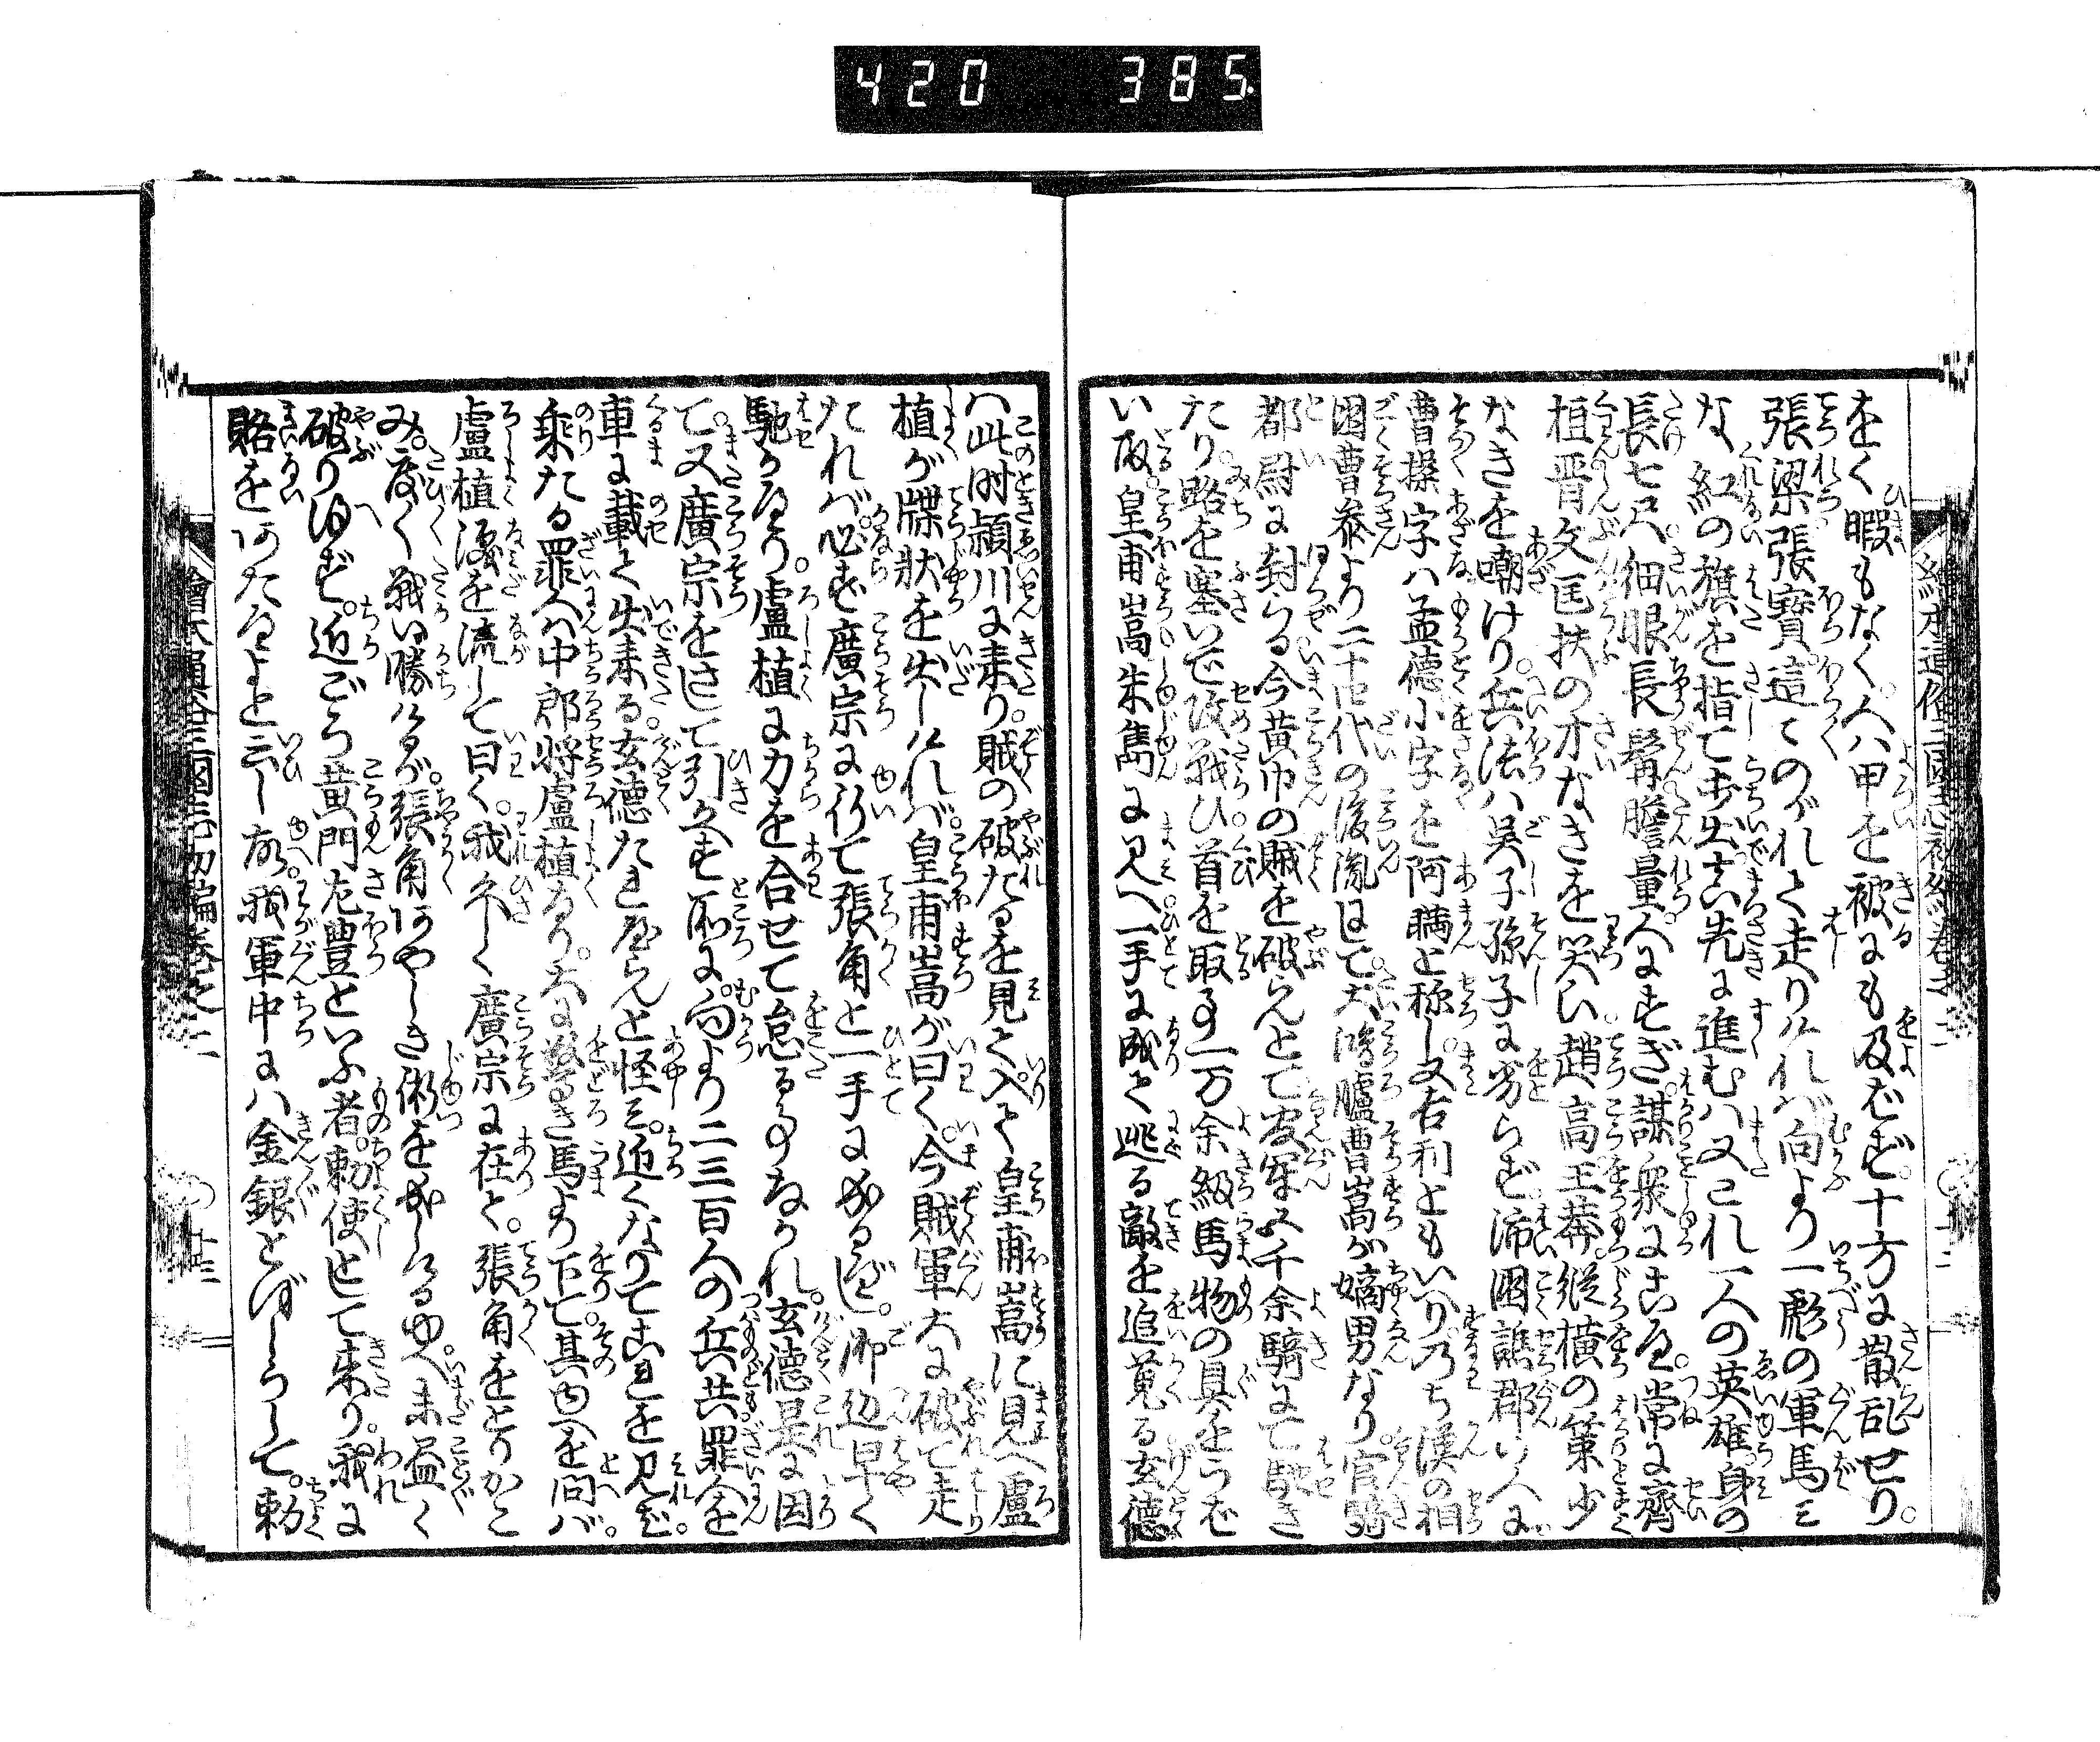 420 385
をく暇もなく。人ハ甲を被にも及ばず。十方に散乱せり。
張梁張寳。這てのがれて走りければ向より一彪の軍馬ミ
な紅の旗を指て打出真先に進むハ又これ一人の英雄身の
長七尺。細眼長髯膽量人にすぎ。謀衆にこゑ。常に齊
桓晋文匡扶の才なきを笑い。趙高王莽。縦横の策少
なきを嘲けり。兵法ハ呉子孫子に劣らず。沛國譙郡の人に
曹操字ハ孟德小字を阿瞞と称し。又吉利ともいり。乃ち漢の相
国曹参より二十四代の後胤にて。大鴻臚曹嵩が嫡男なり。官騎
都尉に封らる今黄巾の賊を破らんとて官軍五千余騎にて馳き
たり。路を塞いで攻戦ひ首を取る事一万余級馬物の具をうば
い取。皇甫嵩朱雋に見へ。一手に成て逃る敵を追蒐る玄徳
ハ此时頴川に来り。賊の破たるを見て。入て皇甫嵩に見へ盧
植が牒状を出しければ。皇甫嵩が曰く。今賊軍大に破て走
たれバ。必ず廣宗に行て張角と一手に成るべし。御辺早く
馳かゑり。盧植に力を合せて怠る事なかれ。玄德是に因
て。又廣宗をさして引かへす所に。向より二三百人の兵共罪人を
車に載て出来る。玄德たれやらんと怪ミ。近くなりてこれを見れば。
乗たる罪人ハ中郎将盧植なり。大に驚き馬より下て。其ゆへを問バ。
盧植涙を流して曰く。我久しく廣宗に在て。張角をとりかこ
み。度〱戦い勝けるが。張角あやしき術を成しけるゆへ。未尽く
破り得ず。近ごろ黄門左豊といふ者。勅使として来り。我に
賂をあたゑよと云し故。我軍中にハ金銀とぼしうして。勅
繪本通俗三國志初編巻之二
十三